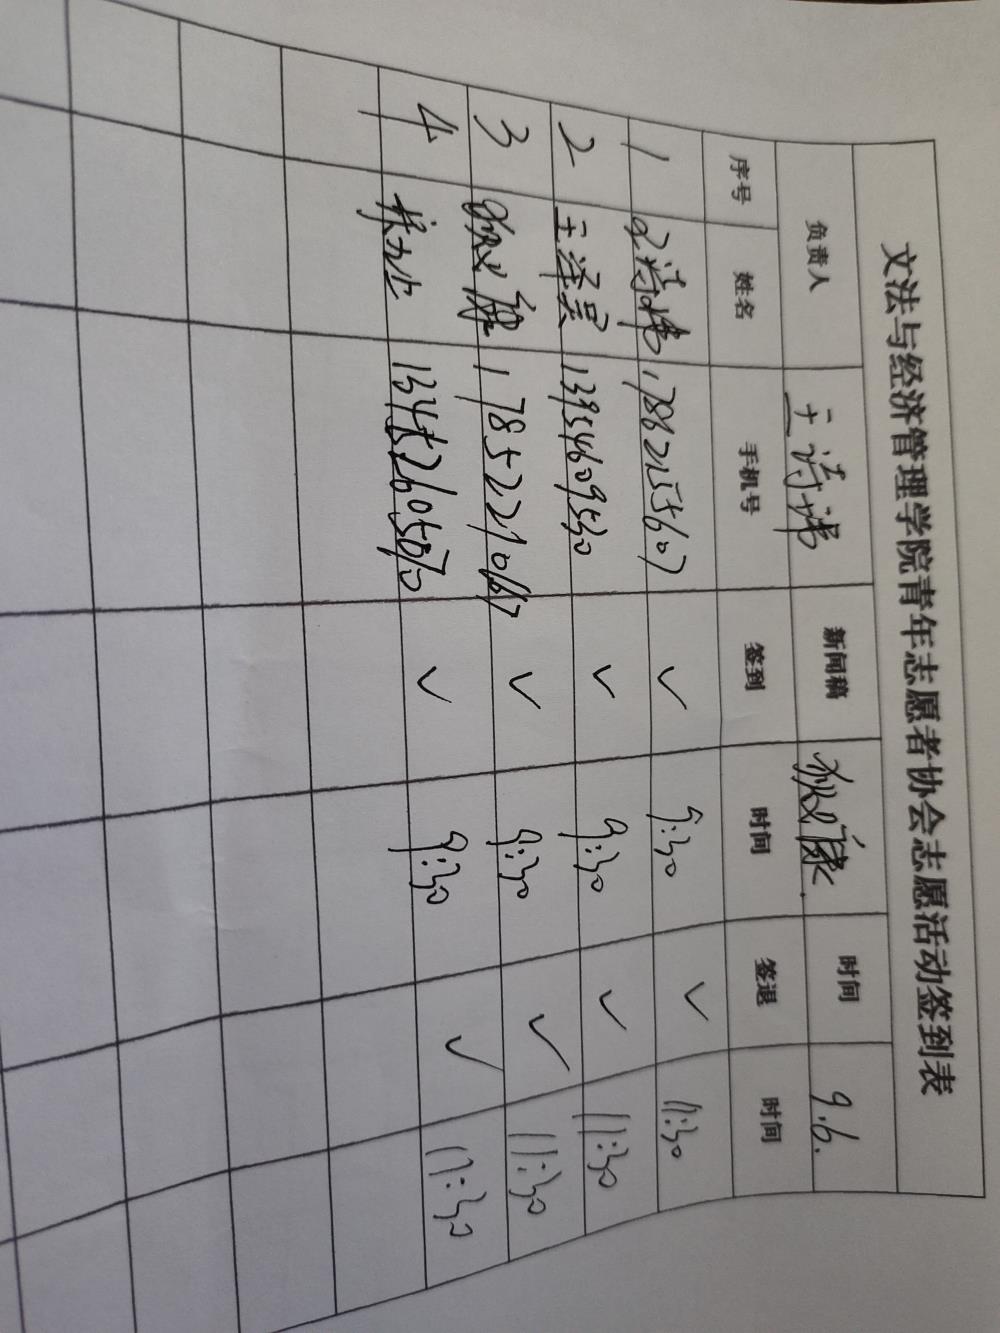 文法与经济管理学院青年志愿者协会志愿活动签到表
负责人 王诗涛 新闻稿 时间 9.6.
序号 姓名 手机号 签到 时间 签退 时间
1 ✓ 9:30 ✓ 11:30
2 王泽昊 13954609530 ✓ 9:30 ✓ 11:30
3 ✓ 9:30 ✓ 11:30
4 ✓ 9:30 ✓ 11:30